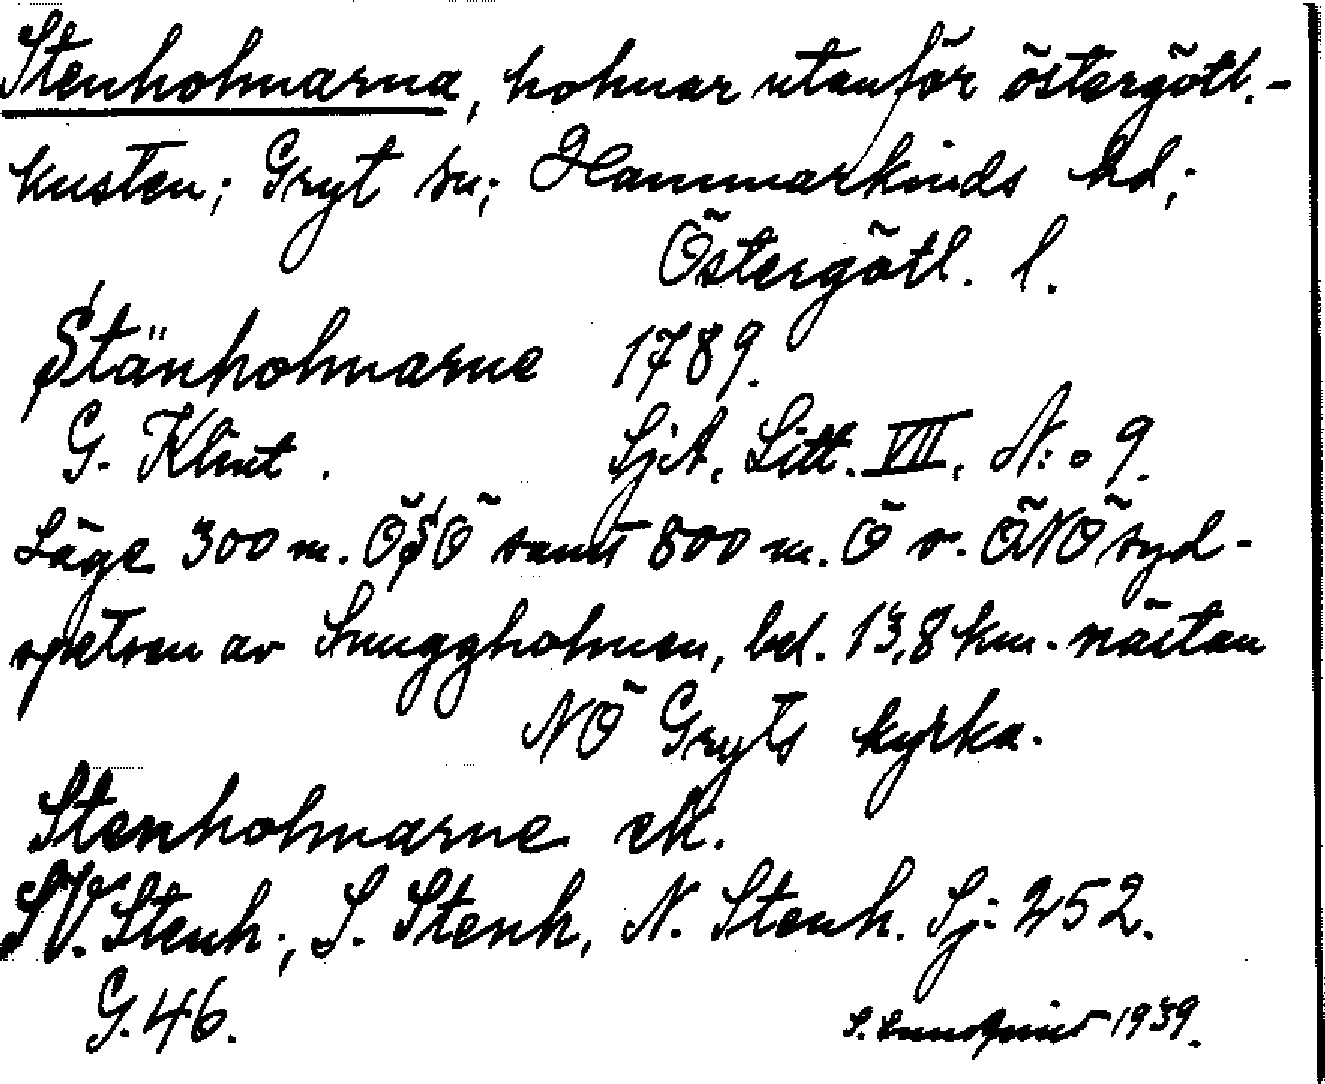 Stenholmarna, holmar utanför östergötl.-
kusten; Gryt sn; Hammarkinds hd;
Östergötl. l.
Stänholmarne 1789.
G. Klint. SjA, Litt. VII, N:o 9.
Läge 300 m. ÖSÖ samt 800 m. Ö v. ÖNÖ syd-
spetsen av Snuggholmen, bel. 13,8 km. nästan
NÖ Gryts kyrka.
Stenholmarne ek.
SV. Stenh.; S. Stenh, N. Stenh. Sj: 252.
G. 46.
1939.